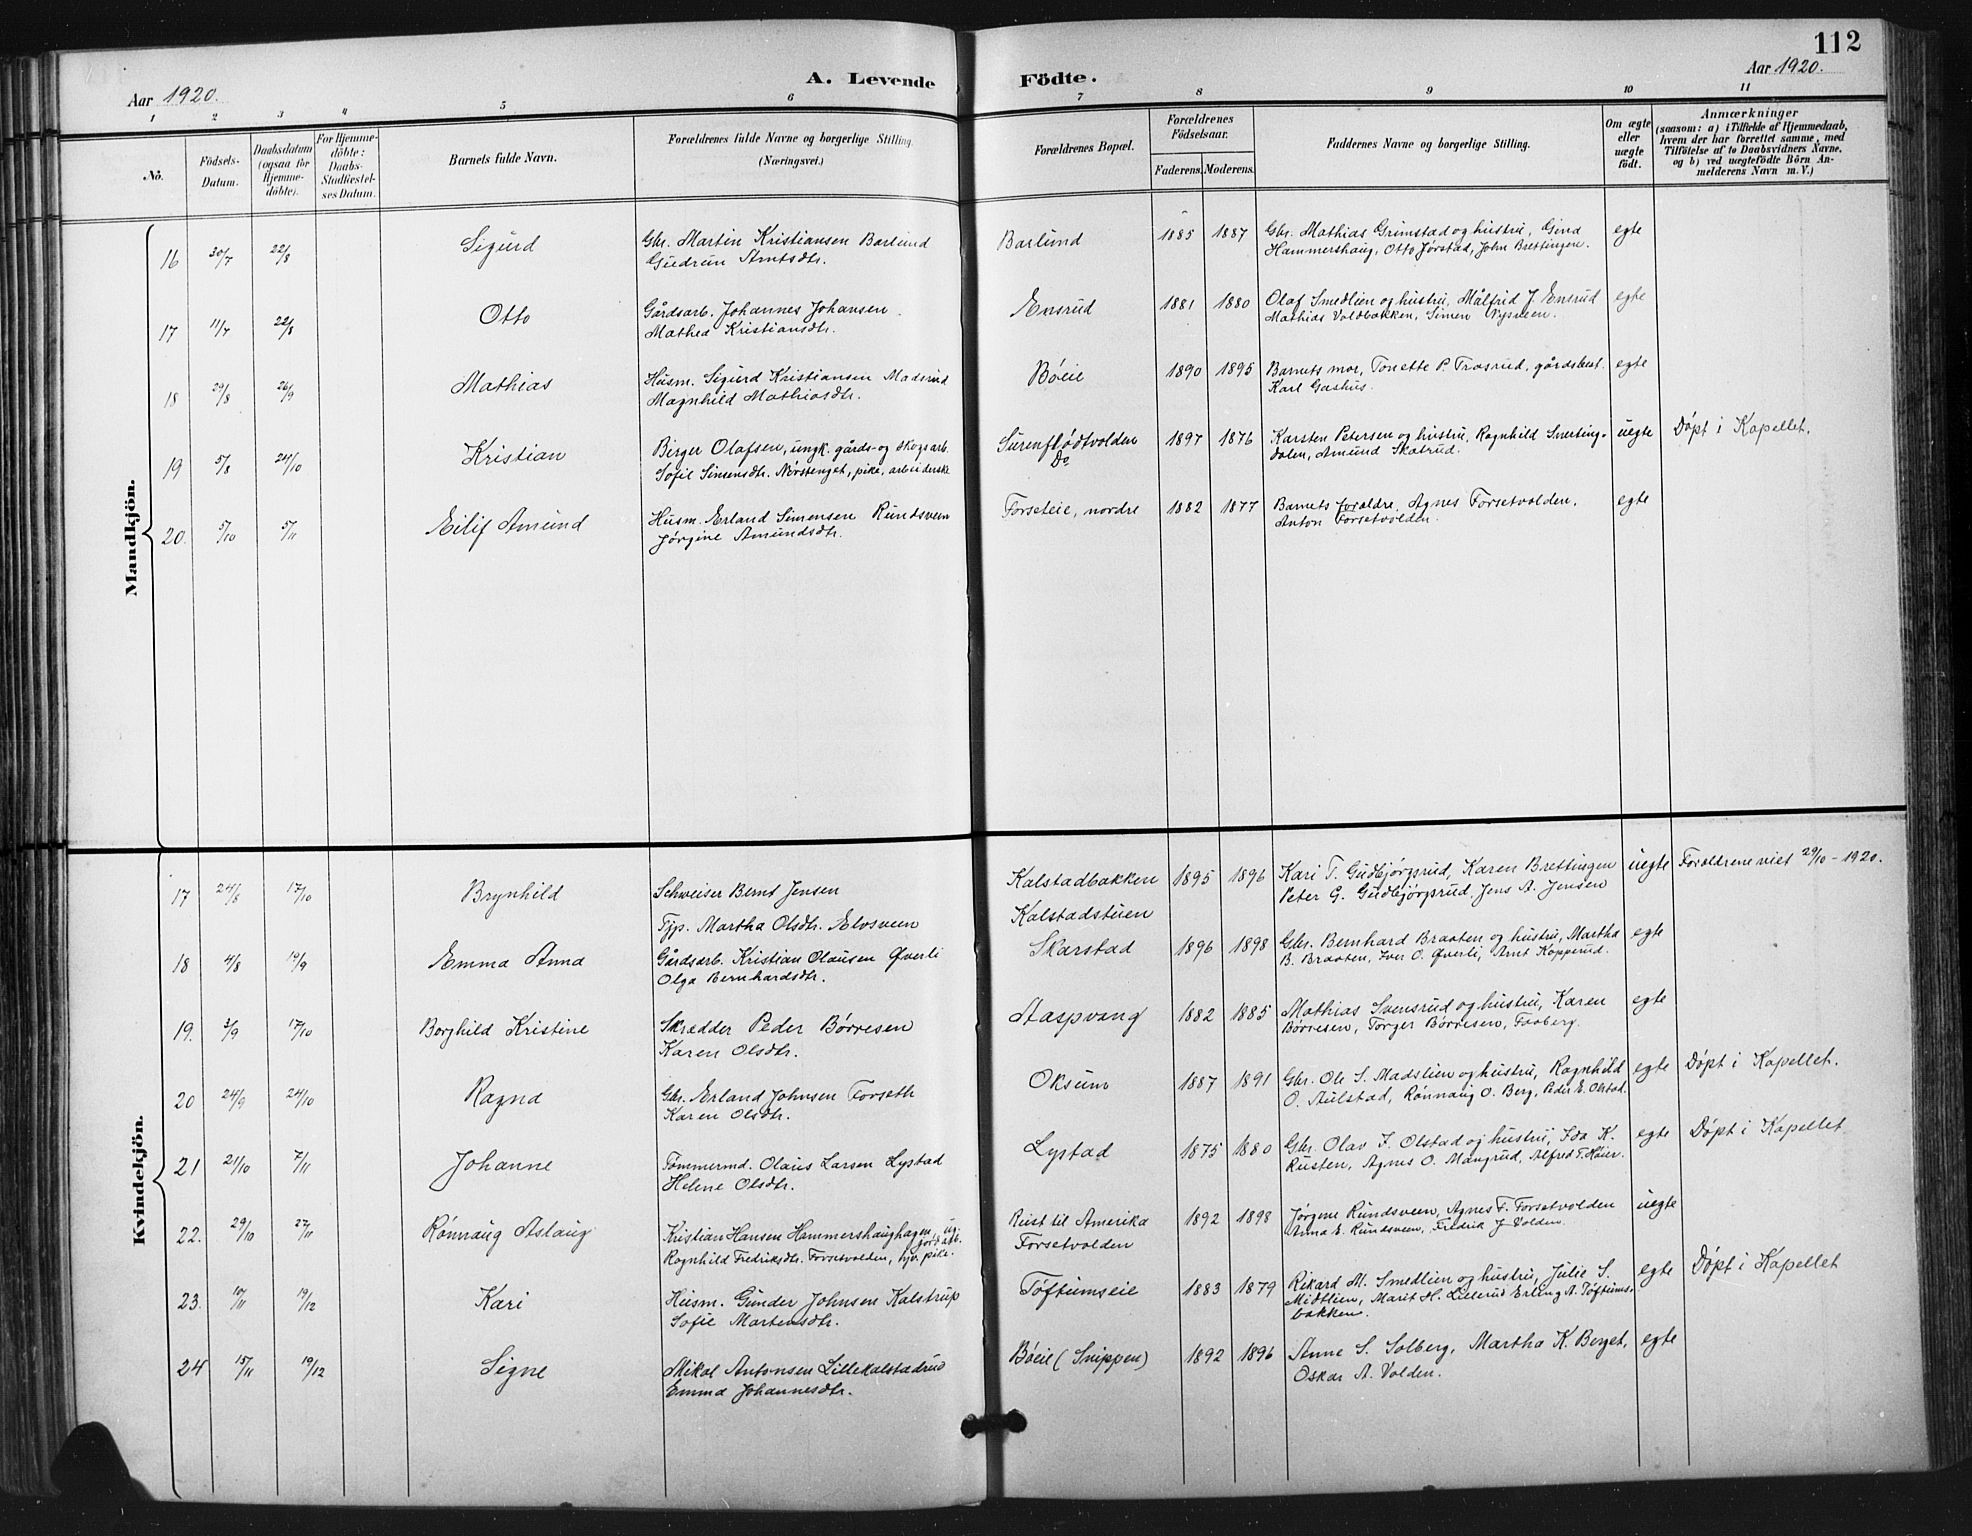 112
Aar 1920.
A. Levende Födte.
Aar 1920.
1 2 3 4 5 6 7 8 9 10 11
No.
Födsels-
Datum.
Daabsdatum
(ogsaa for
Hjemme-
döbte).
For Hjemme-
döbte:
Daabs-
Stadfæstel-
ses Datum.
Barnets fulde Navn.
Forældrenes fulde Navne og borgerlige Stilling
(Næringsvei.)
Forældrenes Bopæl.
Forældrenes
Födselsaar.
Faderens. Moderens.
Faddernes Navne og borgerlige Stilling.
Om ægte
eller
uægte
födt.
Anmærkninger
(saasom: a) i Tilfælde af Hjemmedaab,
hvem der har forrettet samme, med
Tilföielse af to Daabsvidners Navne,
og b) ved uægtefödte Börn An-
melderens Navn m. V.)
Mandkjön.
16 30/7 22/8 Sigurd Gbr. Martin Kristiansen Barlund Barlund 1885 1887 Gbr. Mathias Grimstad og hustru, Gina egte
Gudrun Arntsdtr. Hammershaug, Otto Jørstad, John Brettingen.
17 11/7 22/8 Otto Gårdsarb. Johannes Johansen. Ensrud 1881 1880 Olaf Smedlien og hustru, Målfrid J. Ensrud egte
Mathea Kristiansdtr. Mathias Voldbakken, Simen Nysveen.
18 29/8 26/9 Mathias Husm. Sigurd Kristiansen Madsrud Bøeie 1890 1895 Barnets mor, Tonette P. Trosrud, gårdsbest. egte
Magnhild Mathiasdtr. Karl Gashus.
19 5/8 24/10 Kristian Birger Olafsen, ungk. gårds- og skogsarb. Surenflødtvolden 1897 1876 Karsten Petersen og hustru, Ragnhild Smerting- uegte Døpt i Kapellet.
Sofie Simensdtr. Nørstenget, pike, arbeiderske Do dalen, Amund Skatrud.
20. 5/10 5/11 Eilif Amund Husm. Erland Simensen Rundsveen Forseteie, nordre 1882 1877 Barnets foraldre, Agnes Forsetvolden, egte
Jørgine Amundsdtr. Anton Forsetvolden.
Kvindekjön.
17 24/8 17/10 Brynhild Schweiser Bernt Jensen Kalstadbakken 1895 1896 Kari T. Gudbjørgsrud, Karen Brettingen uegte Foraldrene viet 29/10 - 1920.
Tjp. Martha Olsdtr. Elvsveen Kalstadstuen Peter G. Gudbjørgsrud, Jens A. Jensen
18 4/8 19/9 Emma Anna Gårdsarb. Kristian Olausen Øverli Skarstad 1896 1898 Gbr. Bernhard Braaten og hustru, Martha egte
Olga Bernhardsdtr. B. Braaten, Iver O. Øverli, Arnt Kopperud.
19. 3/9 17/10 Borghild Kristine Skrædder Peder Børresen Aaspvang 1882 1885 Mathias Svensrud og hustru, Karen egte
Karen Olsdtr. Børresen, Torger Børresen, Faaberg.
20 24/9 24/10 Ragna Gbr. Erland Johnsen Forseth Oksum 1887 1891 Gbr. Ole S. Madslien og hustru, Ragnhild egte Døpt i Kapellet.
Karen Olsdtr. O. Aulstad, Rønnaug O. Berg, Peder E. Olstad.
21 21/10 7/11 Johanne Tømmermd. Olaus Larsen Lystad Lystad 1875 1880 Gbr. Olav J. Olstad og hustru, Ida K. egte Døpt i Kapellet
Helene Olsdtr. Rusten, Agnes O. Mangrud, Alfred T. Høier.
22. 29/10 27/11 Rønnaug Aslaug Kristian Hansen Hammershaughagen ug. gårdarb. Reist til Amerika 1892 1898 Jørgine Rundsveen, Agnes F. Forsetvolden uegte
Ragnhild Fredriksdtr. Forsetvolden, hjv. pike. Forsetvolden Anna E. Rundsveen, Fredrik J. Volden.
23. 10/11 19/12 Kari Husm. Gunder Johnsen Kalstrup Tøftumseie 1883 1879 Rikard M. Smedlien og hustru, Julie S. egte Døpt i Kapellet
Sofie Martensdtr. Midtlien, Marit H. Lillerud Erling A. Tøftums-
bakken.
24 15/11 19/12 Signe Mikal Antonsen Lillekalstadrud Bøeie (Snippen) 1892 1896 Anne S. Solberg, Martha K. Berget, egte
Emma Johannesdtr. Oskar A. Volden.